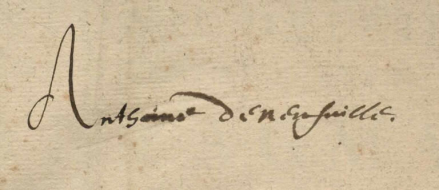 Anthoine Deneufuille.